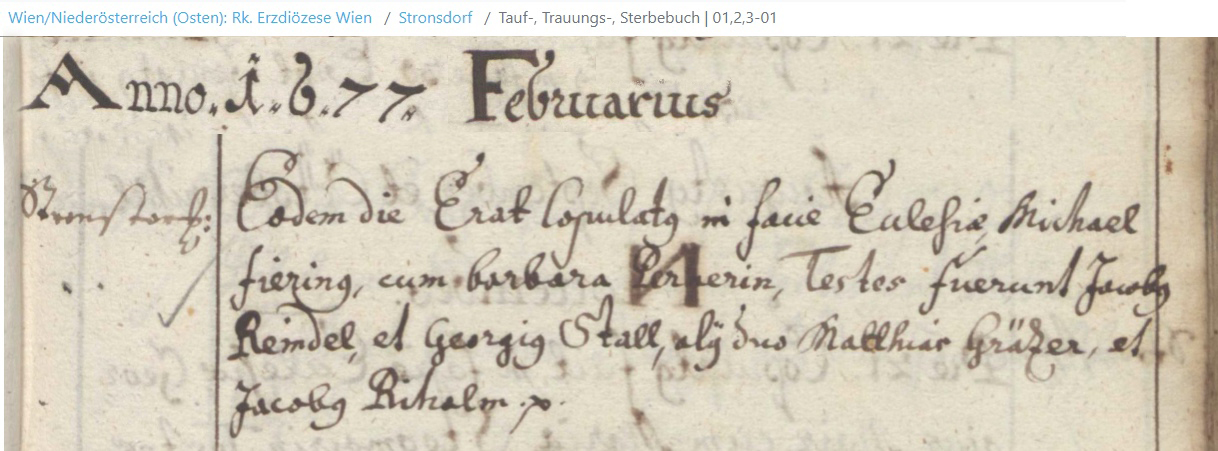 Wien/Niederösterreich (Osten): Rk. Erzdiözese Wien / Stronsdorf / Tauf-, Trauungs-, Sterbebuch | 01,2,3-01
Anno. 1.6.77. Februarius
Eodem die Erat Copulatus in facie Ecclesiæ Michael
fiering, cum barbara, Testes fuerunt Jacobus
Reindel, et Georgius Stall, alÿ duo Matthias Gräzer, et
Jacobus